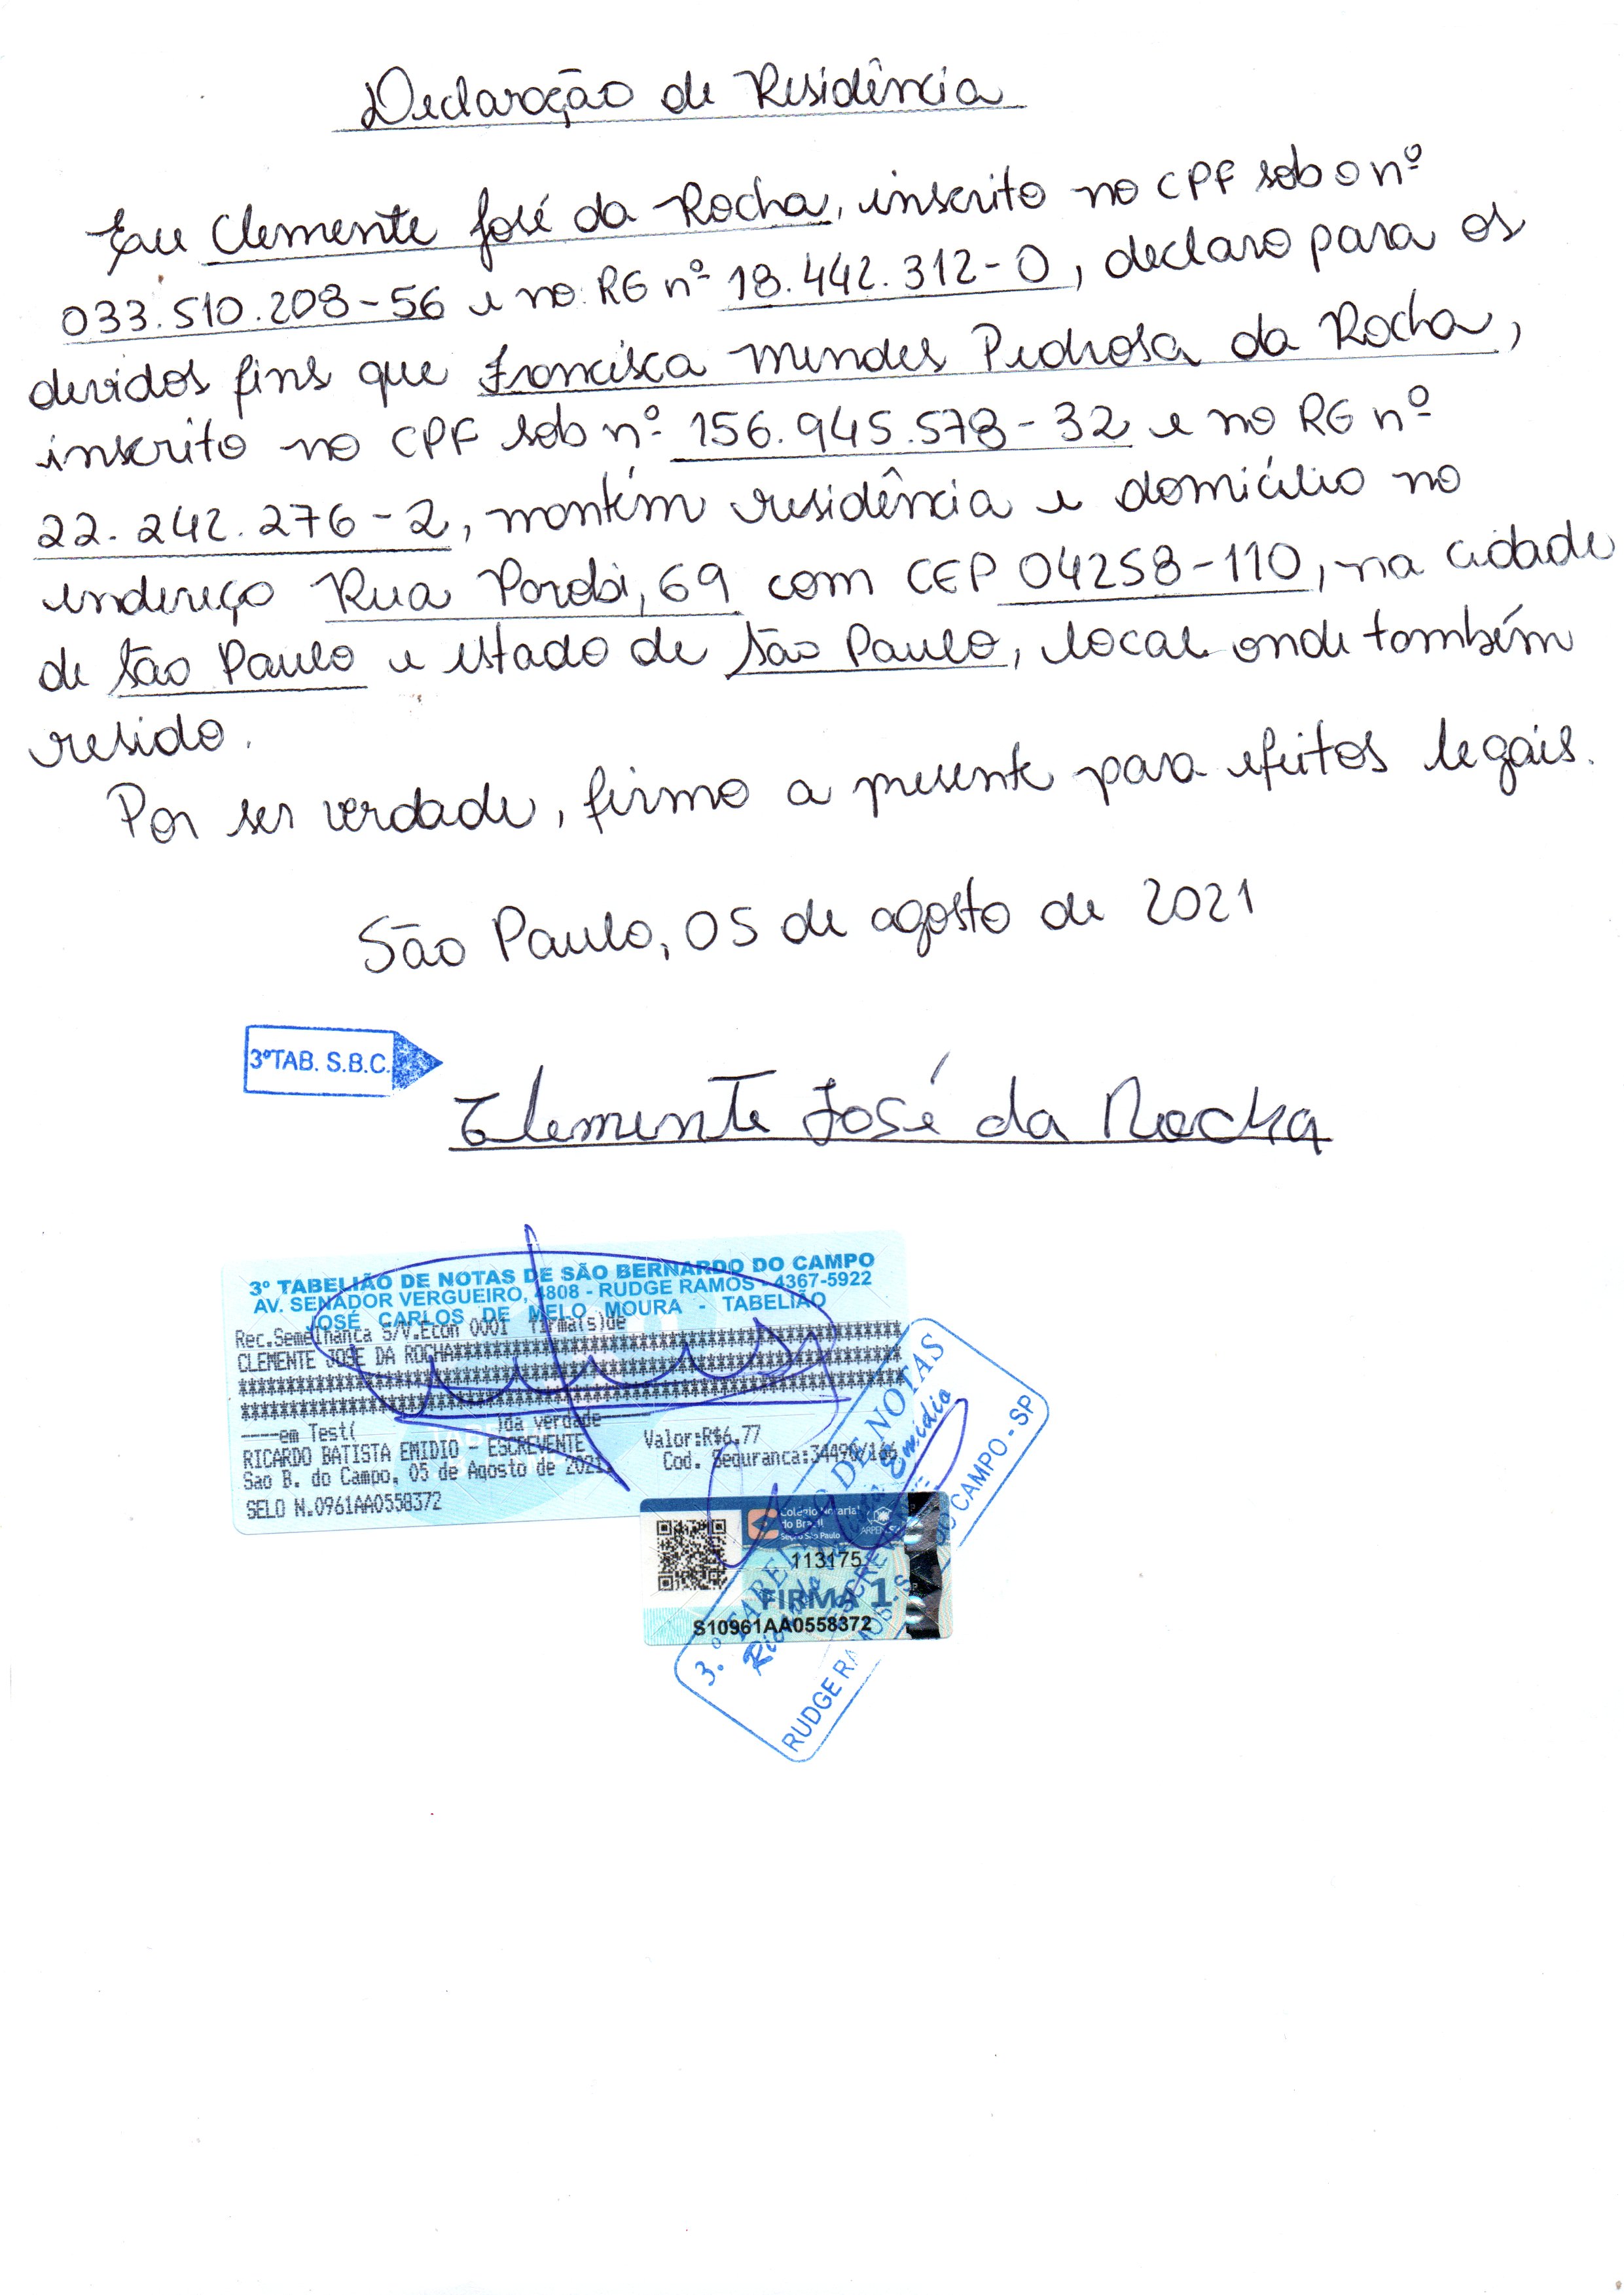 Declaração de Residência
Eu Clemente José da Rocha, inscrito no CPF sob o nº
033.510.208-56 e no RG nº 18.442.312-0, declaro para os
devidos fins que Francisca Mendes Pedrosa da Rocha,
inscrito no CPF sob nº 156.945.578-32 e no RG nº
22.242.276-2, mantém residência e domicílio no
endereço Rua Parobi, 69 com CEP 04258-110, na cidade
de São Paulo e estado de São Paulo, local onde também
resido.
Por ser verdade, firmo a presente para efeitos legais.
São Paulo, 05 de agosto de 2021
3ºTAB. S.B.C.
Clemente José da Rocha
3º TABELIÃO DE NOTAS DE SÃO BERNARDO DO CAMPO
AV. SENADOR VERGUEIRO, 4808 - RUDGE RAMOS - 4367-5922
JOSÉ CARLOS DE MELO MOURA - TABELIÃO
Rec.Semelhanca S/V.Econ 0001 firma(s)de
CLEMENTE JOSE DA ROCHA
----em Test( )da verdade----
RICARDO BATISTA EMIDIO - ESCREVENTE Valor:R$6,77
Sao B. do Campo, 05 de Agosto de 2021. Cod. Seguranca:
SELO N.0961AA0558372
Colégio Notarial
do Brasil
Seção São Paulo
113175
FIRMA 1
S10961AA0558372
3.º TABELIÃO DE NOTAS
Emidio
ESCREVENTE
RUDGE RAMOS - S. DO CAMPO - SP